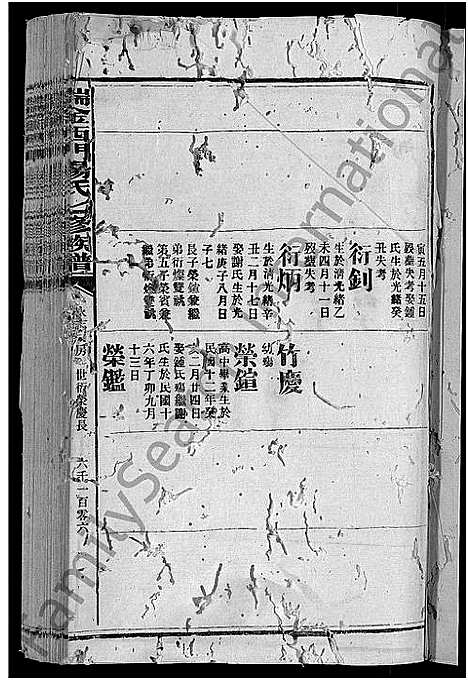 寅五月十五日
歿葬失考娶鍾
氏生於光緒癸
丑失考
衍釗
生於清光緒乙
未四月十一日
歿葬失考
衍炳
生於清光緒辛
丑二月十七日
娶謝氏生於光
緒庚子八月日
子七
長子榮鎧兼繼
弟衍
第五子榮賓兼
繼弟衍
竹慶
幼殤
榮鎧
高中畢業生於
民國十二年癸
亥二月廿四日
娶鍾氏瑞
氏生於民國十
六年丁卯九月
十三日
榮鑑
瑞金西門楊氏七修族譜
房 世衍榮慶長
六千一百零六
FamilySearch International